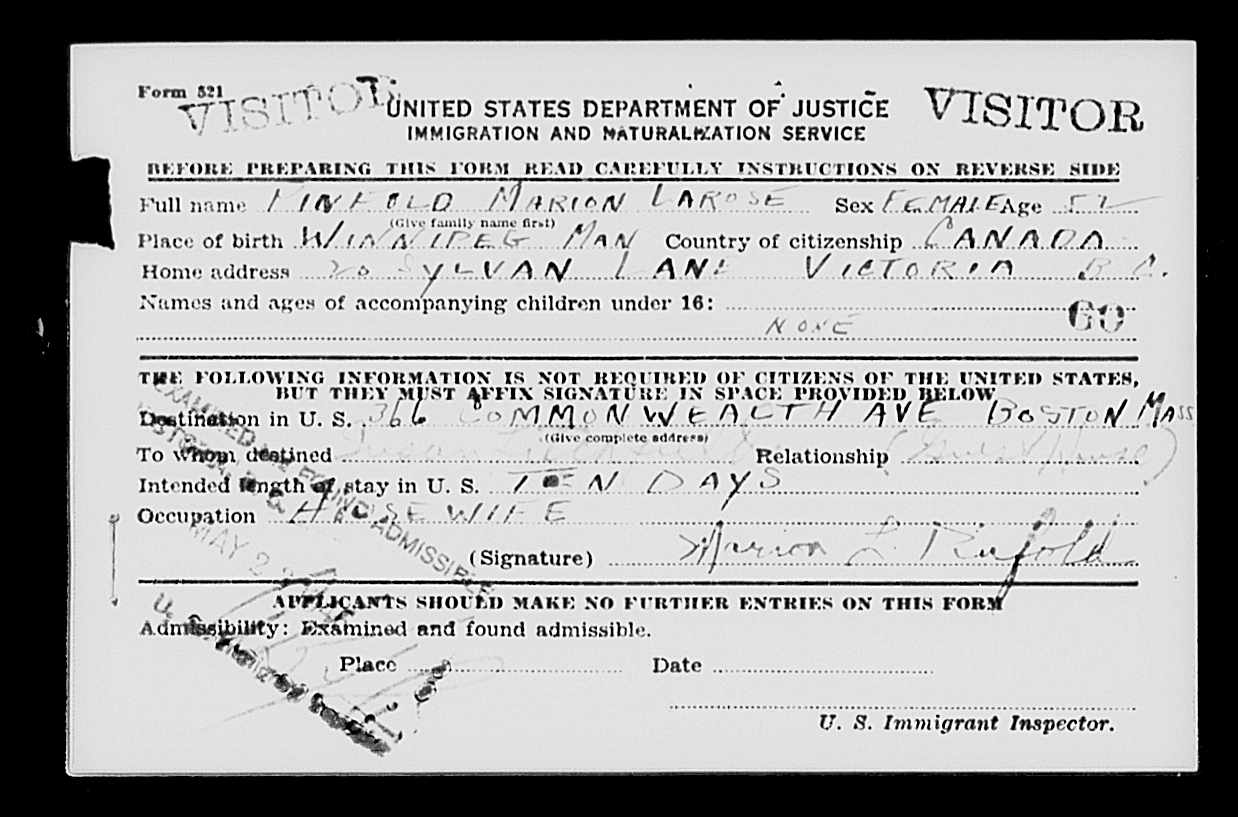 Form 521
VISITOR
UNITED STATES DEPARTMENT OF JUSTICE
VISITOR
IMMIGRATION AND NATURALIZATION SERVICE
BEFORE PREPARING THIS FORM READ CAREFULLY INSTRUCTIONS ON REVERSE SIDE
Full name PINFOLD MARION LAROSE Sex FEMALE Age 52
(Give family name first)
Place of birth WINNIPEG MAN Country of citizenship CANADA
Home address 20 SYLVAN LANE VICTORIA B.C.
Names and ages of accompanying children under 16:
GO
NONE
THE FOLLOWING INFORMATION IS NOT REQUIRED OF CITIZENS OF THE UNITED STATES,
BUT THEY MUST AFFIX SIGNATURE IN SPACE PROVIDED BELOW
Destination in U. S. 366 COMMONWEALTH AVE BOSTON MASS
(Give complete address)
To whom destined Susan Relationship (Guest House)
Intended length of stay in U. S. TEN DAYS
Occupation HOUSEWIFE
(Signature) Marion L. Pinfold
EXAMINED AND FOUND ADMISSIBLE
MAY 2
APPLICANTS SHOULD MAKE NO FURTHER ENTRIES ON THIS FORM
Admissibility: Examined and found admissible.
Place Date
U. S. Immigrant Inspector.